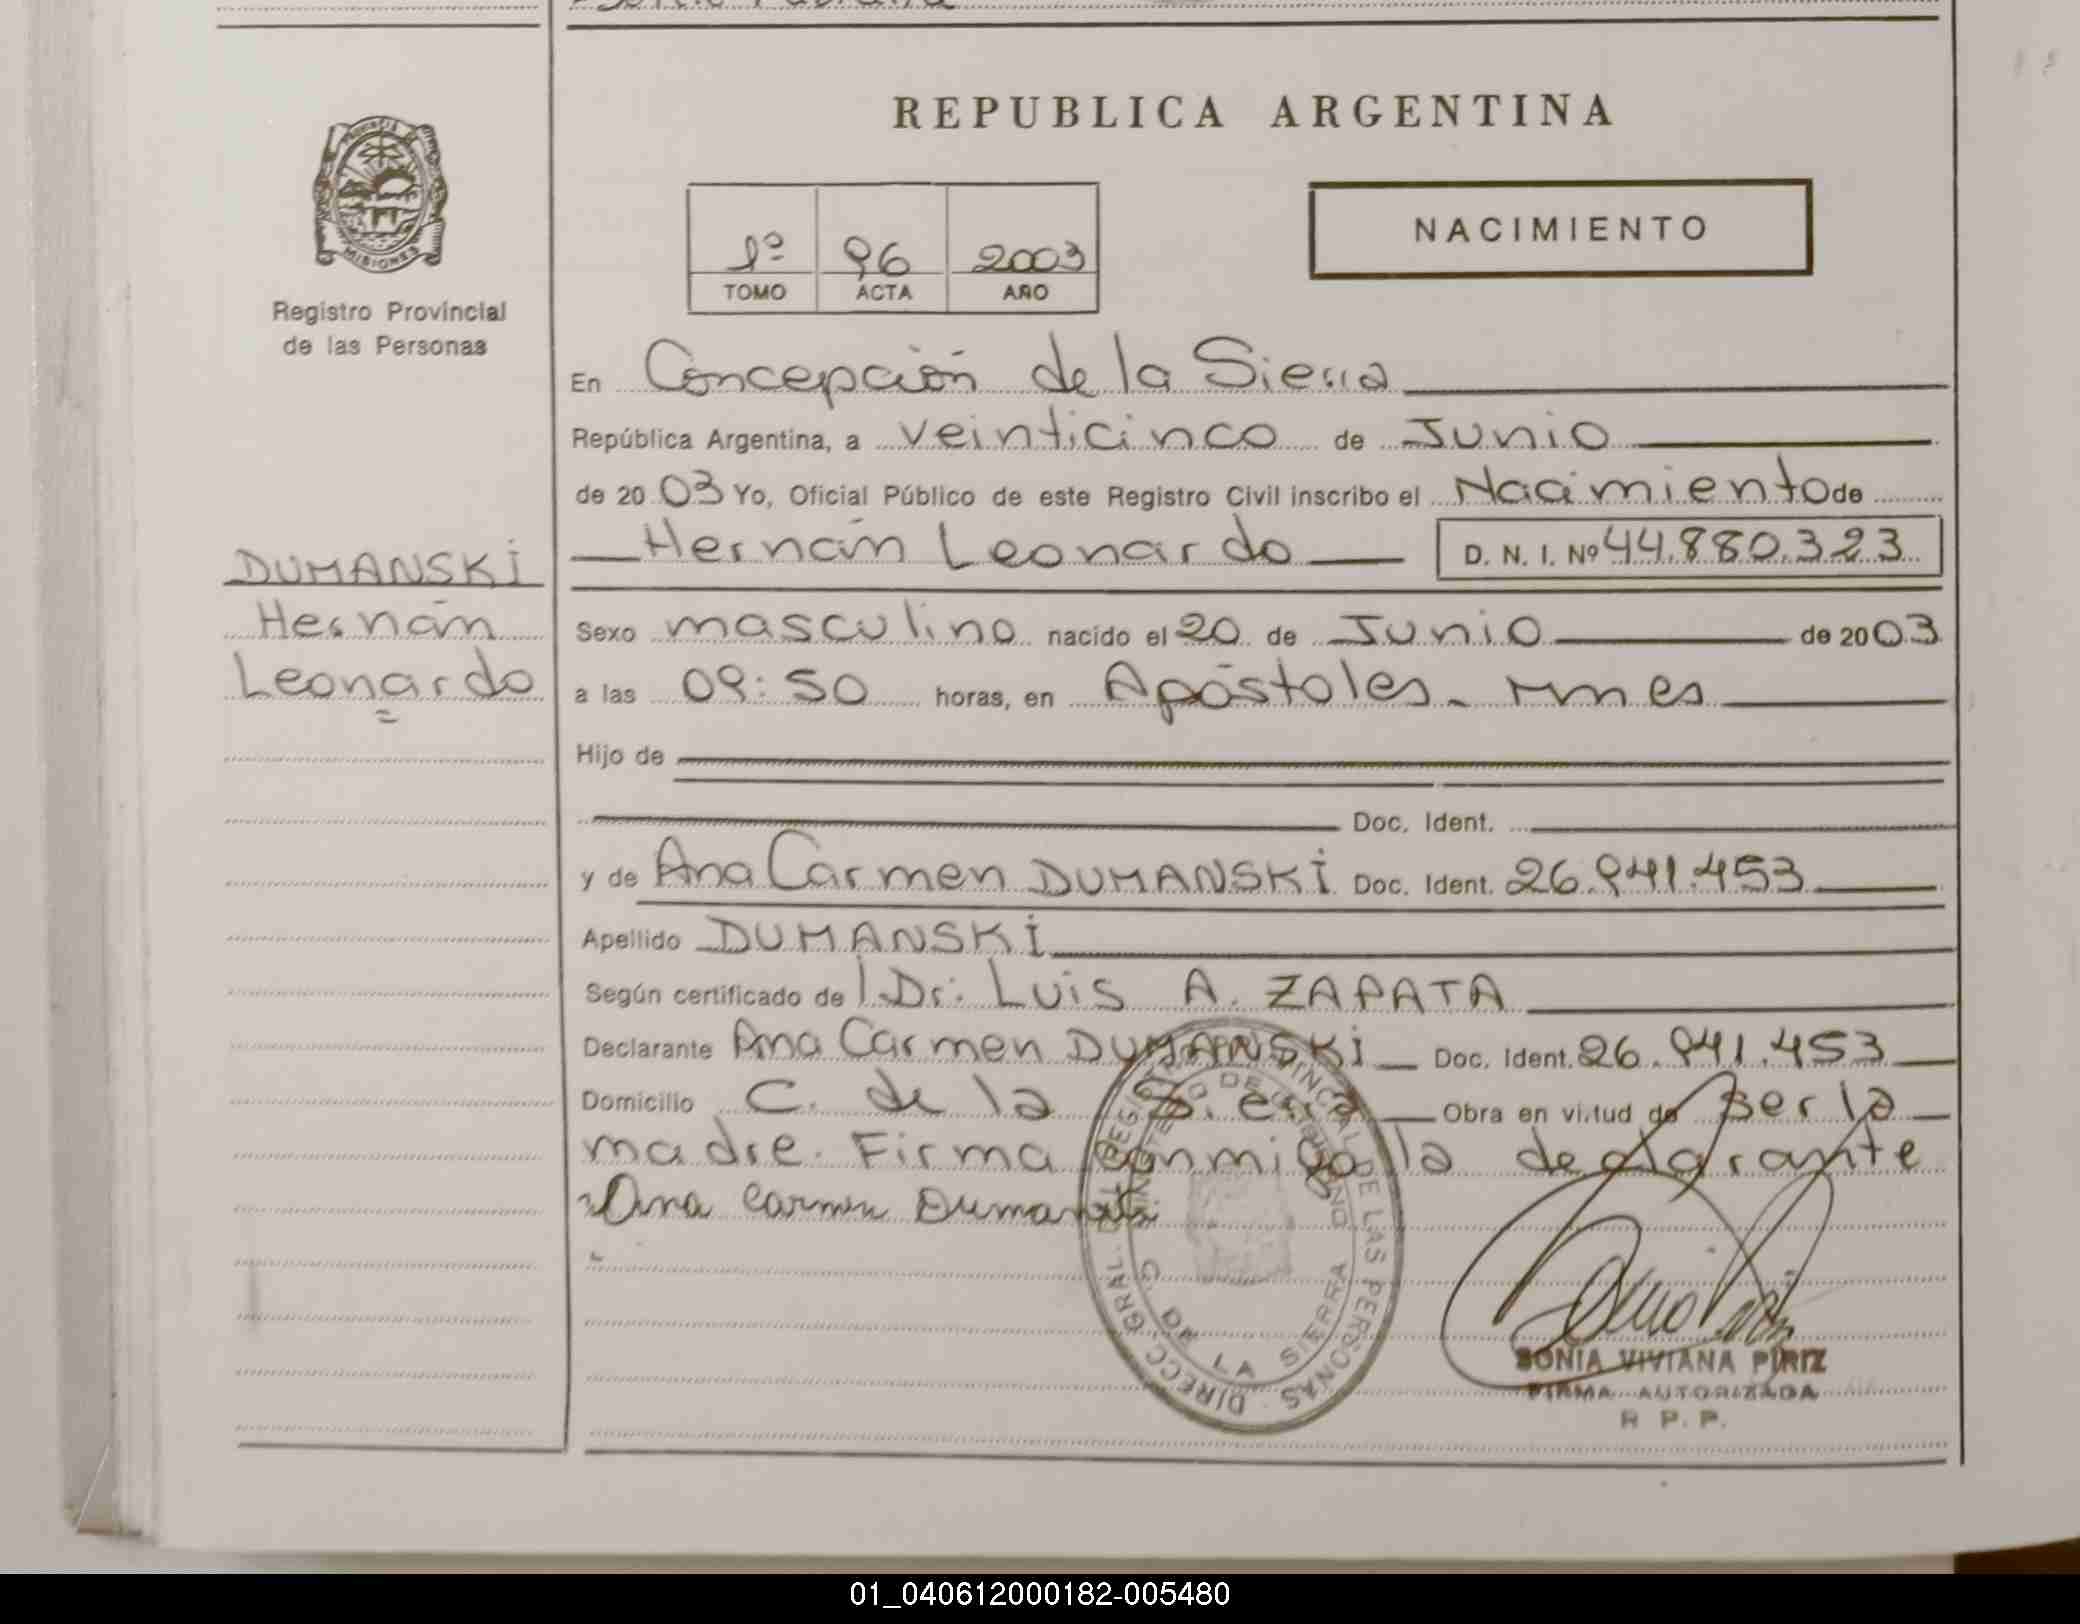 REPUBLICA ARGENTINA
PROVINCIA
MISIONES
Registro Provincial
de las Personas
1º 96 2003
TOMO ACTA AÑO
NACIMIENTO
En Concepción de la Sierra
República Argentina, a veinticinco de Junio
de 2003 Yo, Oficial Público de este Registro Civil inscribo el Nacimiento de
Hernán Leonardo D. N. I. Nº 44.880.323
DUMANSKI
Hernán
Leonardo
Sexo masculino nacido el 20 de Junio de 2003
a las 09:50 horas, en Apóstoles - Mnes
Hijo de
Doc. Ident.
y de Ana Carmen DUMANSKI Doc. Ident. 26.941.453
Apellido DUMANSKI
Según certificado de Dr: Luis A. ZAPATA
Declarante Ana Carmen DUMANSKI Doc. Ident. 26.941.453
Domicilio C. de la Sierra Obra en virtud de ser la
madre. Firma conmigo la declarante
Ana Carmen Dumanski
DIRECC. GRAL. DEL REGISTRO PROVINCIAL DE LAS PERSONAS
MINISTERIO DE GOBIERNO
C. DE LA SIERRA
SONIA VIVIANA PIRIZ
FIRMA AUTORIZADA
R P. P.
01_040612000182-005480